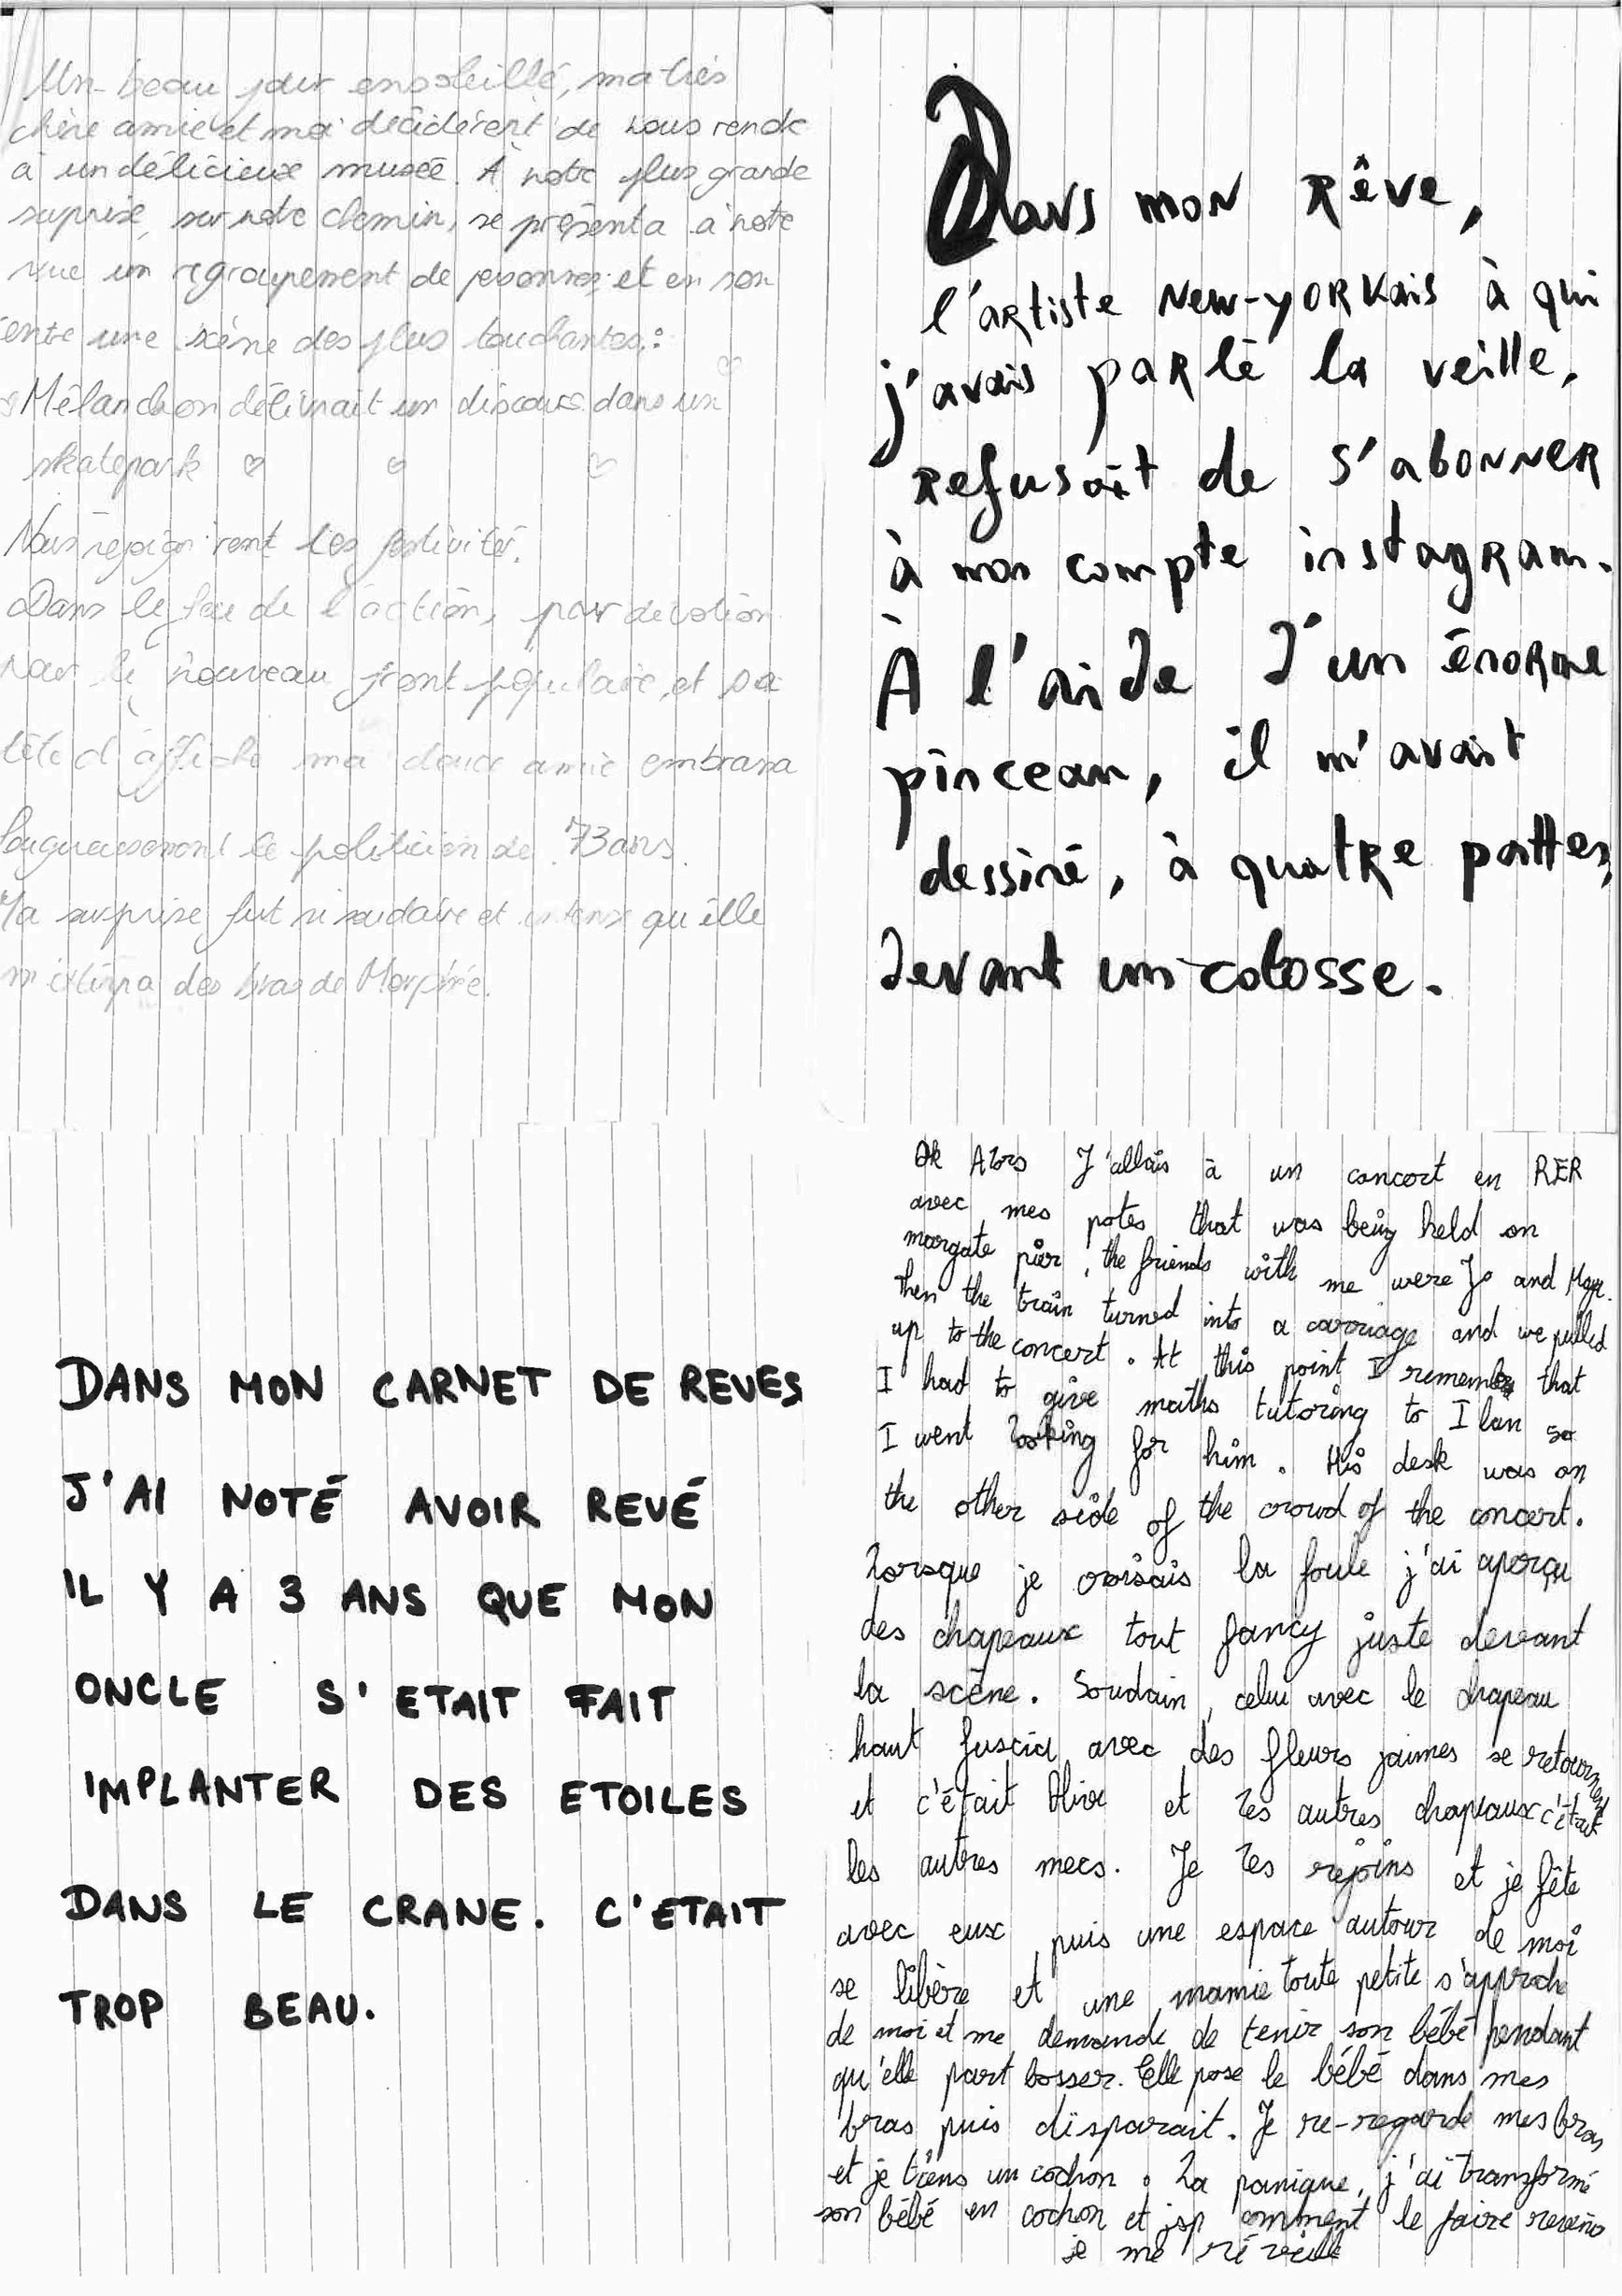 Un beau jour ensoleillé, ma très
chère amie et moi décidèrent de nous rendre
à un délicieux musée. À notre plus grande
suprise, sur notre chemin, se présenta à notre
vue un regroupement de personnes, et en son
centre une scène des plus touchantes :
Mélanchon délivrait un discours dans un
skatepark
Nous rejoignirent les festivités.
Dans le feu de l'action, par dévotion
pour le nouveau front populaire, et sa
tête d'affiche ma douce amie embrassa
fougueusement le politicien de 73 ans.
Ma surprise fut si soudaine et intense qu'elle
m'extirpa des bras de Morphée.
Dans mon rêve,
l'artiste New-yorkais à qui
j'avais parlé la veille,
refusait de s'abonner
à mon compte instagram.
À l'aide d'un énorme
pinceau, il m'avait
dessiné, à quatre pattes,
devant un colosse.
DANS MON CARNET DE REVES
J'AI NOTÉ AVOIR REVÉ
IL Y A 3 ANS QUE MON
ONCLE S'ETAIT FAIT
IMPLANTER DES ETOILES
DANS LE CRANE. C'ETAIT
TROP BEAU.
Ok Alors J'allais à un concert en RER
avec mes potes that was being held on
margate pier, the friends with me were Jo and
then the train turned into a carriage and we pulled
up to the concert. At this point I remember that
I had to give maths tutoring to Ilan so
I went looking for him. His desk was on
the other side of the crowd of the concert.
Lorsque je croisais la foule j'ai aperçu
des chapeaux tout fancy juste devant
la scène. Soudain, celui avec le chapeau
haut fuscia avec des fleurs jaunes se retournait
et c'était et les autres chapeaux c'était
les autres mecs. Je les rejoins et je fête
avec eux, puis une espace autour de moi
se libère et une mamie toute petite s'approche
de moi et me demande de tenir son bébé pendant
qu'elle part bosser. Elle pose le bébé dans mes
bras puis disparait. Je re-regarde mes bras
et je tiens un cochon. La panique, j'ai transformé
son bébé en cochon et jsp comment le faire revenir
je me réveille